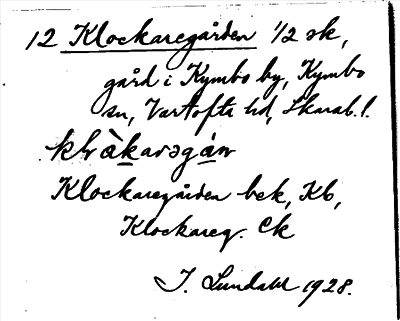 12 Klockaregården 1/2 sk,
gård i Kymbo by, Kymbo
sn, Vartofta hd, Skarab. l.
Klockaregården bek, Kb,
Klockareg. Ck
I. Lundahl 1928.